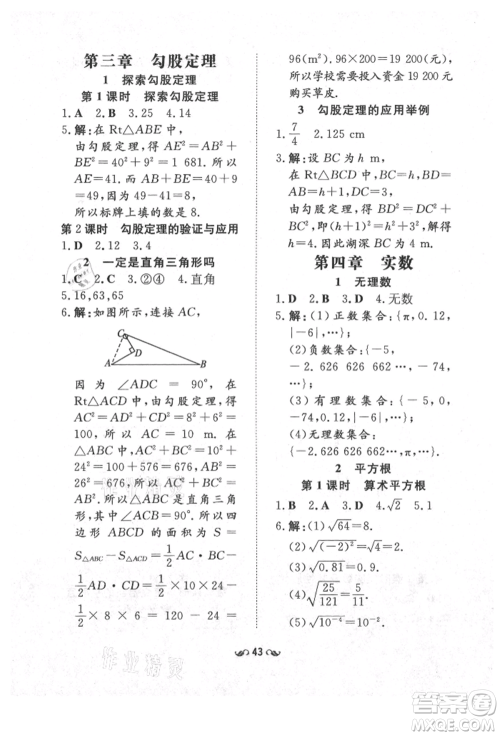 第三章 勾股定理
1 探索勾股定理
第1课时 探索勾股定理
1.A 2.B 3.25 4.A
5.解：在 Rt△ABE 中，
由勾股定理，得 AE²+
BE²=40²+9²，所以
AE=41. 所以 AF=
49. 因为 49-41=8，
所以标牌上填的数为 8.
第2课时 勾股定理的验证与应用
1.D 2.12 3.4
2 一定是直角三角形吗
1.C 2.C 3.②④ 4.直角
5.16,63,65
6.解：如图所示，连接 AC，
C
D
A
B
因为∠ADC=90°，
在 Rt△ACD 中，由勾
股定理，得 AD²+CD²=
AC²=6²+8²=
100，所以 AC=10. 在
△ABC 中，AC²+
BC²=10²+24²=
26²=AB²，所以
∠ACB=90°. 所以四
边形 ABCD 的面积为
S△ABC-S△ACD=1/2
AC·BC-1/2AD·
CD=1/2×10×24-
1/2×6×8=120-24=
96(m²). 96×200=19 200
元. 所以学校需投入资金 19 200 元
购买草皮.
3 勾股定理的应用举例
1.7/4 2.125 cm
3.解：设 BC 为 h m，在
Rt△BCD 中，BD²=
BC²+CD²，
即(h+1)²=h²+3²，得
h=4. 因此湖深 BC 为
4 m.
第四章 实数
1 无理数
1.D 2.A 3.D 4.无数
5.解：(1)正数集合：{π,0.12,
|-6|,…};
(2)负数集合：{-5,
-2.626 626 662…,…};
(3)有理数集合：{-5,
0.12,|-6|,…};
(4)无理数集合：{π,
-2.626 626 662…,…}.
2 平方根
第1课时 算术平方根
1.B 2.A 3.A 4.√2 5.1
6.解：(1)√64=8.
(2)√(-2)²=2.
(3)√0.81=0.9.
(4)√25/121=5/11.
(5)√10⁻⁴=10⁻².
43
作业精灵
答案圈
MXQE.COM